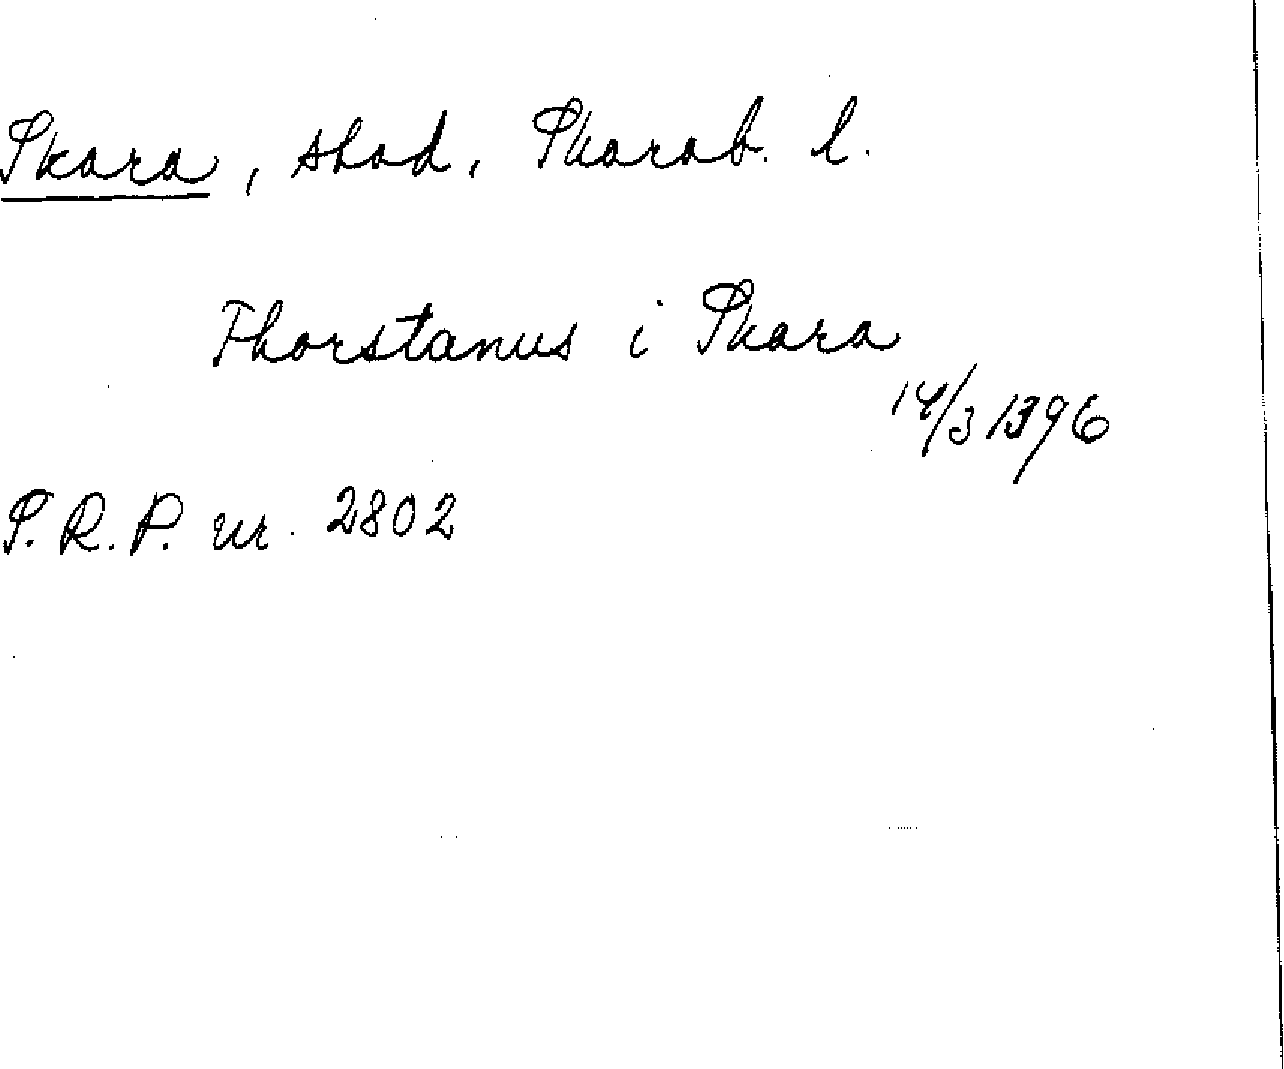 Skara, stad, Skarab. l.
Thorstanus i Skara
14/3 1396
S.R.P. nr. 2802